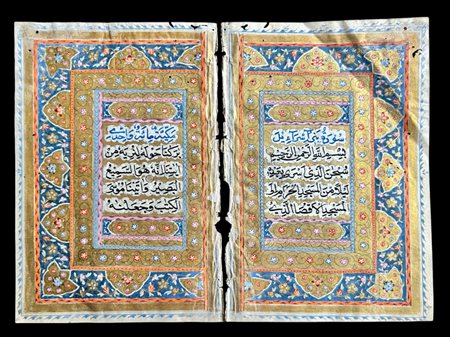 سورة بنی اسرائیل
بسم الله الرحمن الرحيم
سبحن الذي اسرى بعبده
ليلا من المسجد الحرام الى
المسجد الاقصا الذي
مكية
بركنا حوله لنريه من
ايتنا انه هو السميع
البصير واتينا موسى
الكتب وجعلنه